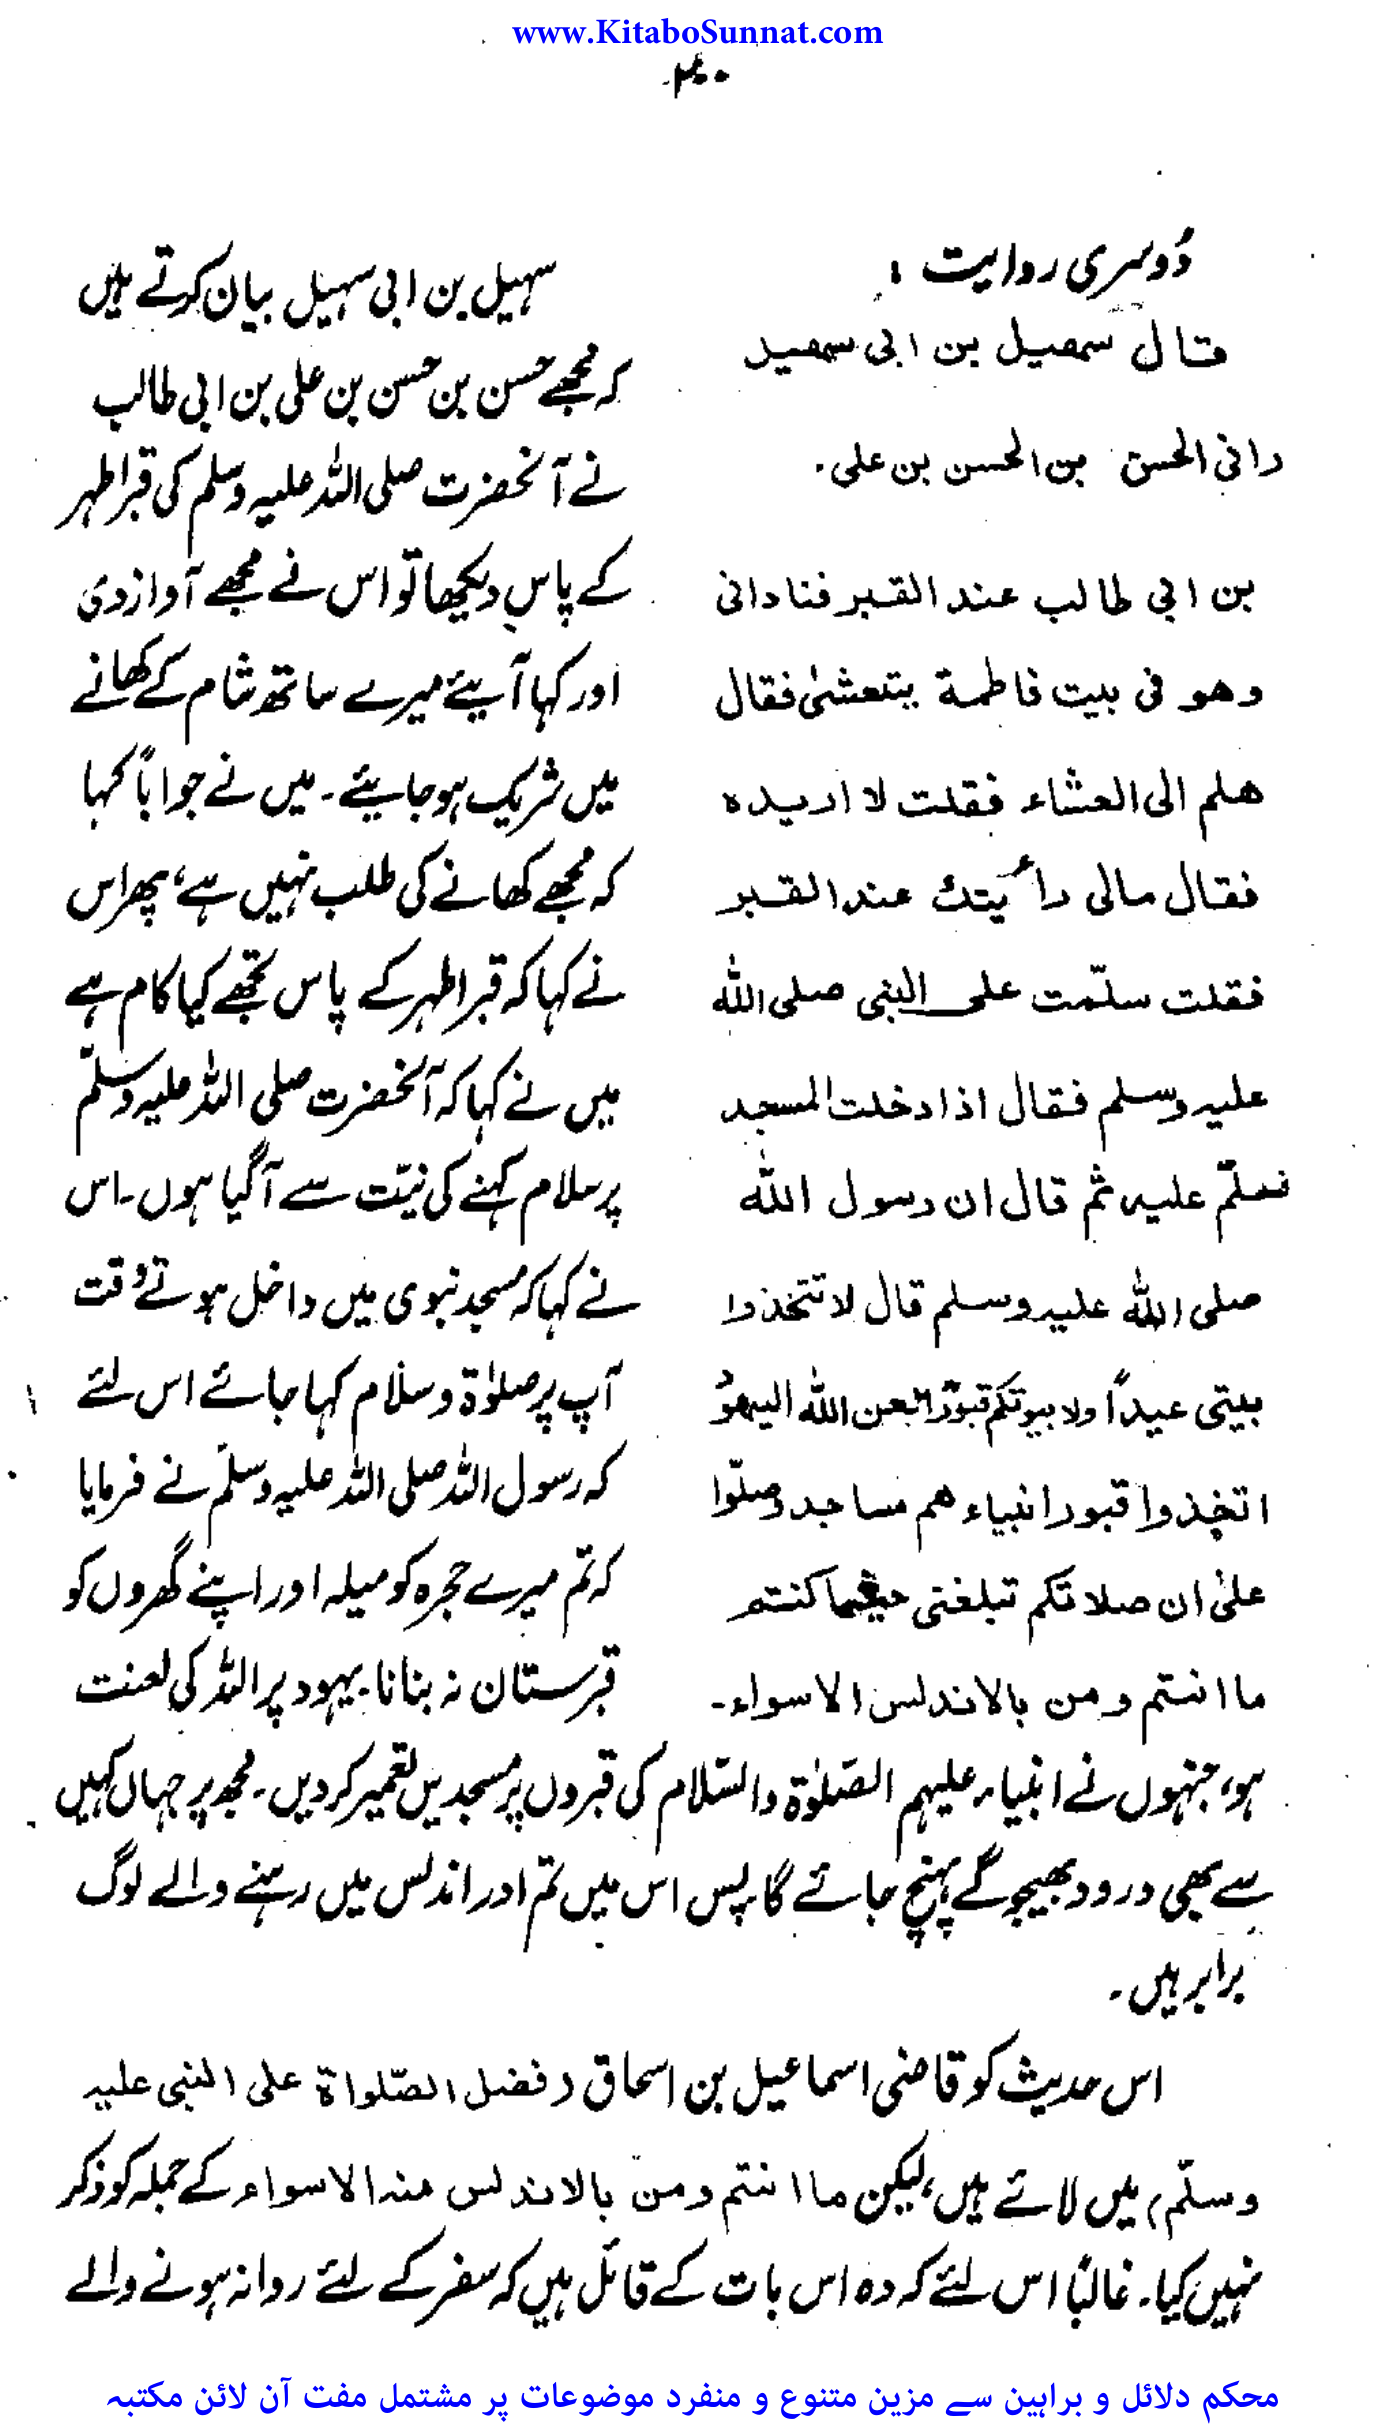 www.KitaboSunnat.com
دُوسری روایت :
قال سهیل بن ابی سهیل
رانی الحسن بن الحسن بن علی۔
بن ابی طالب عند القبر فنادانی
وهو فی بیت فاطمة یتعشیٰ فقال
هلم الی العشاء فقلت لا اریده
فقال مالی رأیتك عند القبر
فقلت سلّمت علی النبی صلی الله
علیه وسلم فقال اذا دخلت المسجد
فسلّم علیه ثم قال ان رسول الله
صلی الله علیه وسلم قال لا تتخذوا
بیتی عیداً ولا بیوتکم قبورًا لعن الله الیهود
اتخذوا قبور انبیاء هم مساجد وصلّوا
علیٰ ان صلاتکم تبلغنی حیثما کنتم
ما انتم ومن بالاندلس الا سواء۔
سہیل بن ابی سہیل بیان کرتے ہیں
کہ مجھے حسن بن حسن بن علی بن ابی طالب
نے آنحضرت صلی اللہ علیہ وسلم کی قبر اطہر
کے پاس دیکھا تو اس نے مجھے آواز دی
اور کہا آیئے میرے ساتھ شام کے کھانے
میں شریک ہوجایئے۔ میں نے جواباً کہا
کہ مجھے کھانے کی طلب نہیں ہے، پھر اس
نے کہا کہ قبر اطہر کے پاس تجھے کیا کام ہے
میں نے کہا کہ آنحضرت صلی اللہ علیہ وسلّم
پر سلام کہنے کی نیّت سے آگیا ہوں۔ اس
نے کہا کہ مسجد نبوی میں داخل ہوتے وقت
آپ پر صلوٰۃ وسلام کہا جائے اس لئے
کہ رسول اللہ صلی اللہ علیہ وسلم نے فرمایا
کہ تم میرے حجرہ کو میلہ اور اپنے گھروں کو
قبرستان نہ بنانا۔ یہود پر اللہ کی لعنت
ہو، جنہوں نے انبیاء علیہم الصّلوٰۃ والسّلام کی قبروں پر مسجدیں تعمیر کردیں۔ مجھ پر جہاں کہیں
سے بھی درود بھیجو گے پہنچ جائے گا۔ پس اس میں تم اور اندلس میں رہنے والے لوگ
برابر ہیں۔
اس حدیث کو قاضی اسماعیل بن اسحاق (فضل الصّلواۃ علی النبی علیہ
وسلّم) میں لائے ہیں، لیکن ما انتم ومن بالاندلس منہ الا سواء کے جملہ کو ذکر
نہیں کیا۔ غالبًا اس لئے کہ وہ اس بات کے قائل ہیں کہ سفر کے لئے روانہ ہونے والے
محکم دلائل و براہین سے مزین متنوع و منفرد موضوعات پر مشتمل مفت آن لائن مکتبہ